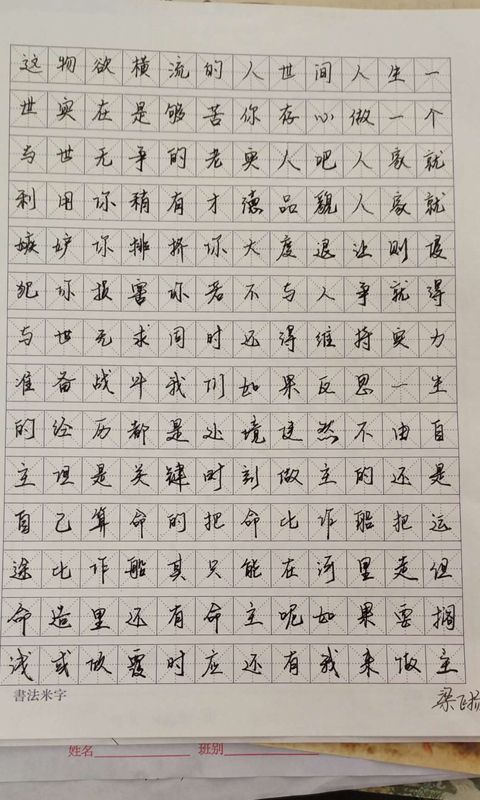 这物欲横流的人世间人生一
世实在是够苦你存心做一个
与世无争的老实人吧人家就
利用你稍有才德品貌人家就
嫉妒你排挤你大度退让则侵
犯你损害你若不与人争就得
与世无求同时还得维持实力
准备战斗我们如果反思一生
的经历都是处境使然不由自
主但是关键时刻做主的还是
自己算命的把命比作船把运
途比作船其只能在河里走但
命造里还有命主呢如果要搁
浅或倾覆时应还有我来做主
書法米字
梁
姓名
班别